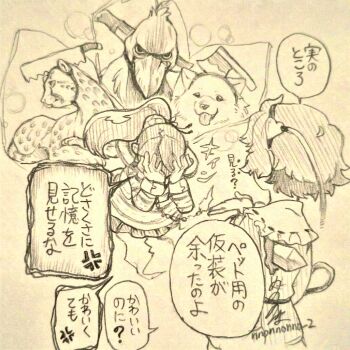 実の
ところ
ペット用の
仮装が
余ったのよ
見る?
キャン
どさくさに
記憶を
見せるな
かわいい
のに?
かわいく
ても
nnonnonno-2